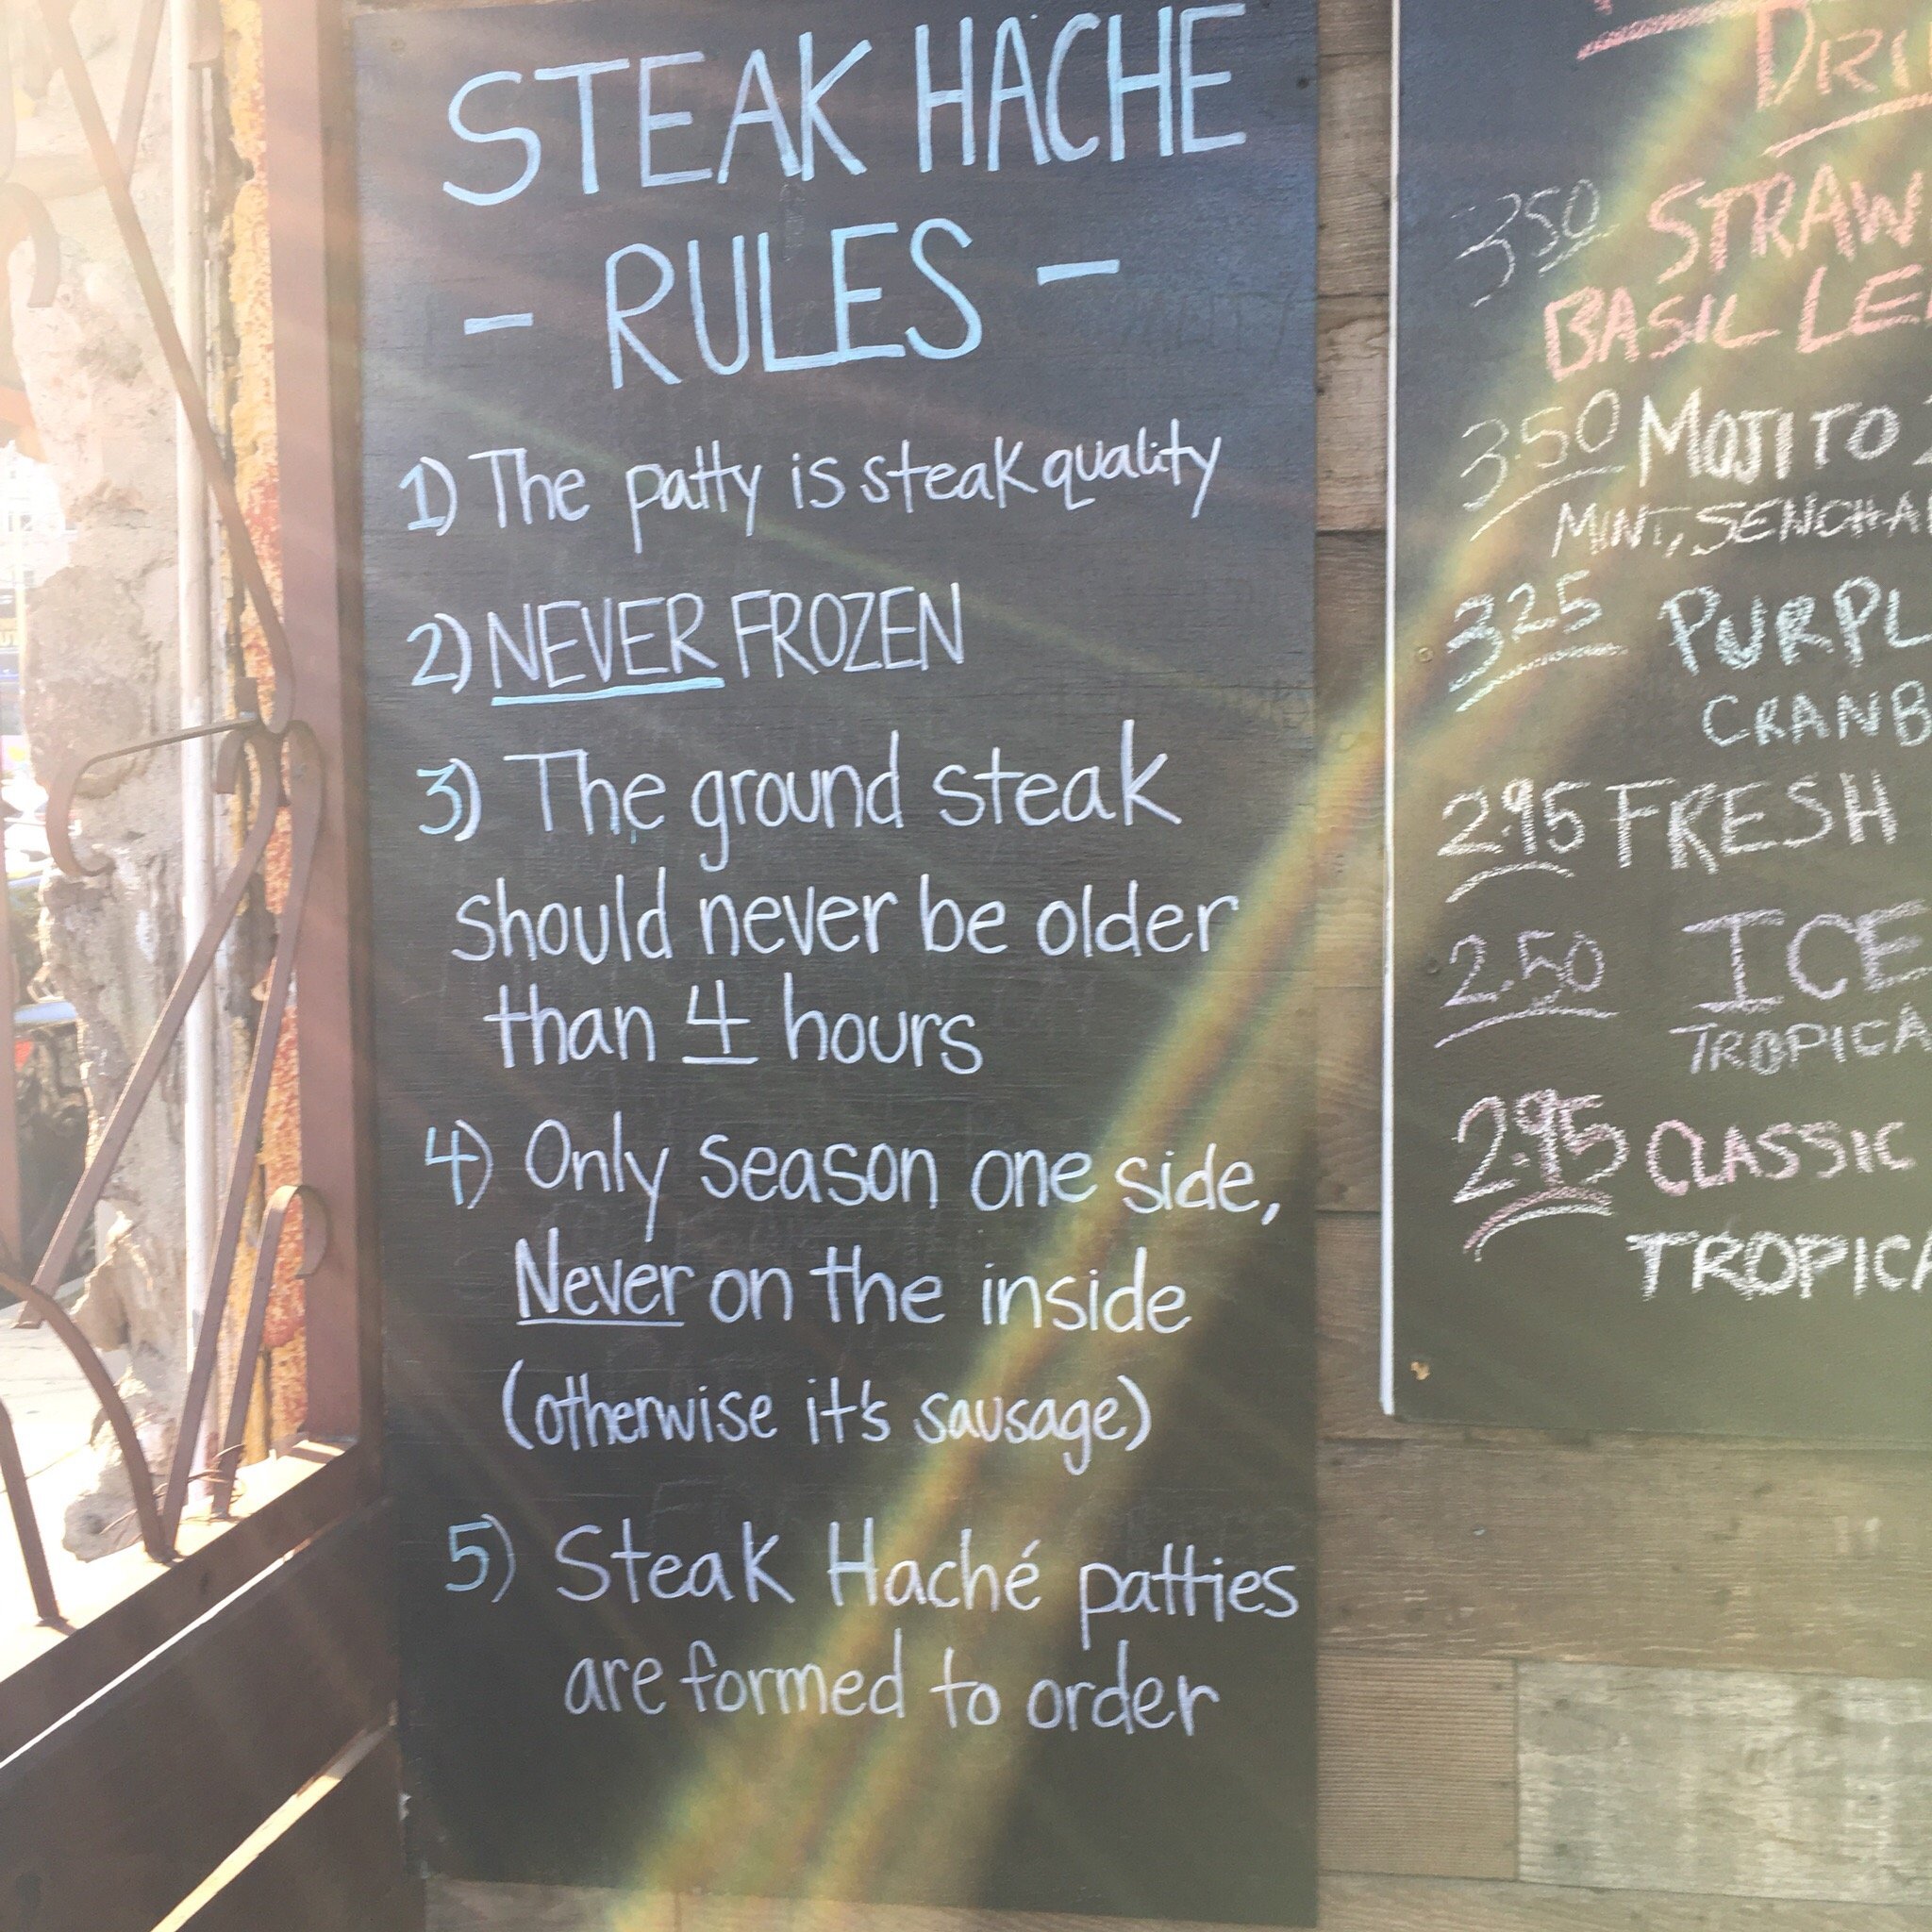 STEAK HACHE
- RULES -
1) The patty is steak quality
2) NEVER FROZEN
3) The ground steak
should never be older
than 4 hours
4) Only season one side,
Never on the inside
(otherwise it's sausage)
5) Steak Haché patties
are formed to order
3.50
BASIL
3.50 MOJITO
MINT, SENCHA
3.25
2.95 FRESH
2.50 ICE
2.95 CLASSIC